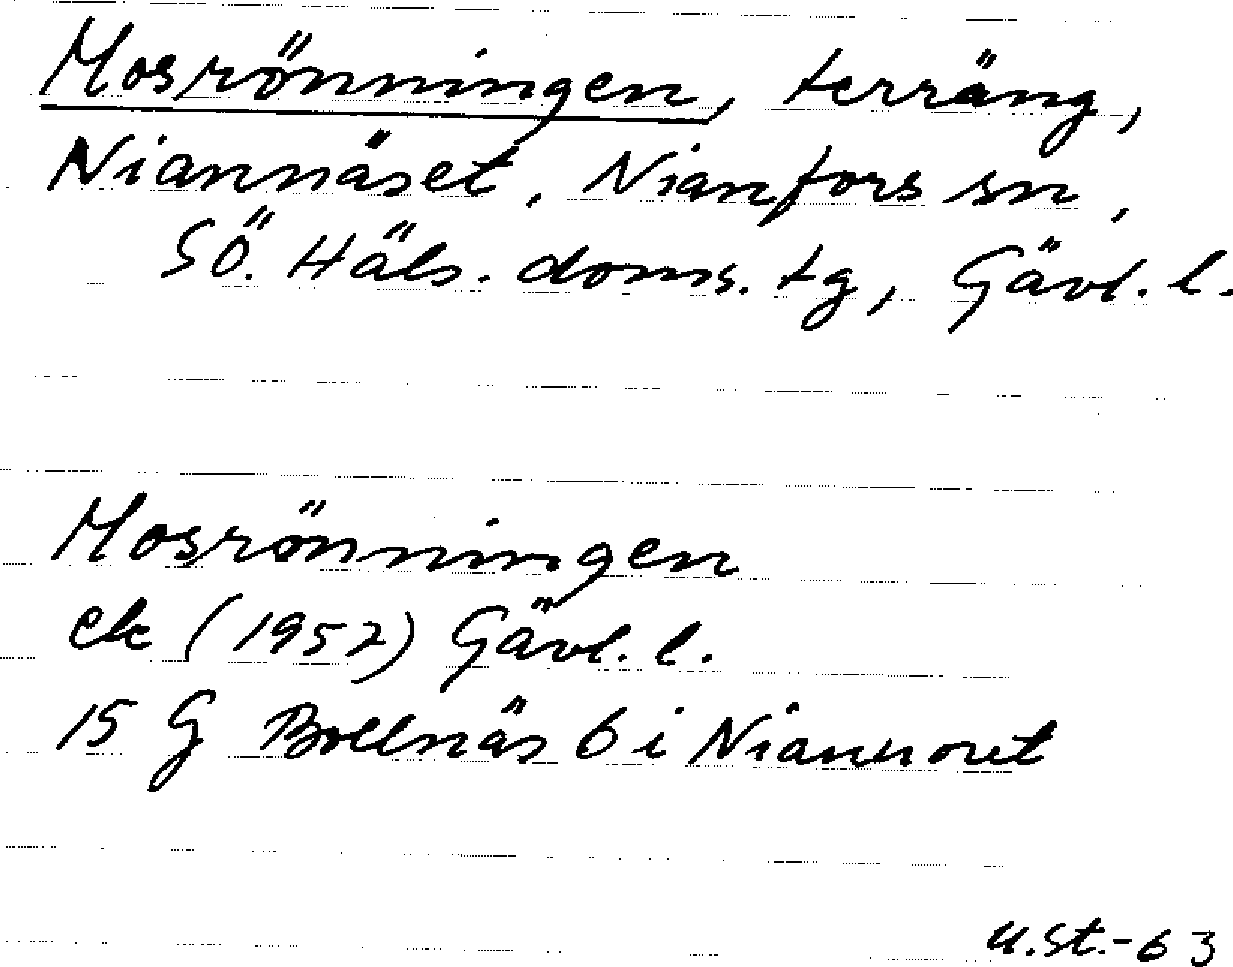 Mosrönningen, terräng,
Niannäset, Nianfors sn,
SÖ. Häls. doms. tg, Gävl. l.
Mosrönningen
ek (1957) Gävl. l.
15 G Bollnäs 6 i Niannoret
U.St.-63